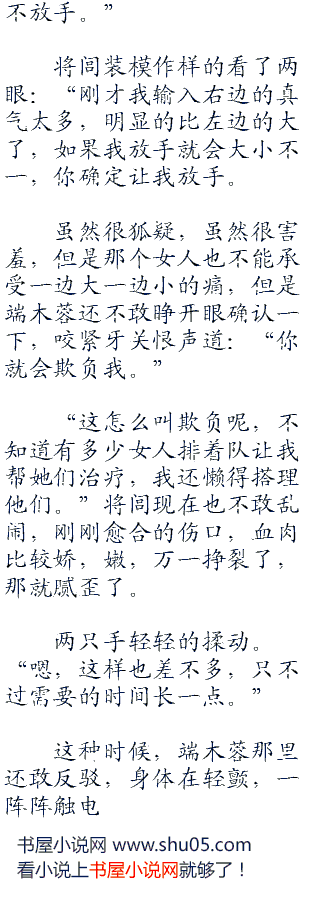 不放手。”
将闾装模作样的看了两
眼：“刚才我输入右边的真
气太多，明显的比左边的大
了，如果我放手就会大小不
一，你确定让我放手。
虽然很狐疑，虽然很害
羞，但是那个女人也不能承
受一边大一边小的痛，但是
端木蓉还不敢睁开眼确认一
下，咬紧牙关恨声道：“你
就会欺负我。”
“这怎么叫欺负呢，不
知道有多少女人排着队让我
帮她们治疗，我还懒得搭理
他们。”将闾现在也不敢乱
闹，刚刚愈合的伤口，血肉
比较娇，嫩，万一挣裂了，
那就腻歪了。
两只手轻轻的揉动。
“嗯，这样也差不多，只不
过需要的时间长一点。”
这种时候，端木蓉那里
还敢反驳，身体在轻颤，一
阵阵触电
书屋小说网 www.shu05.com
看小说上书屋小说网就够了！